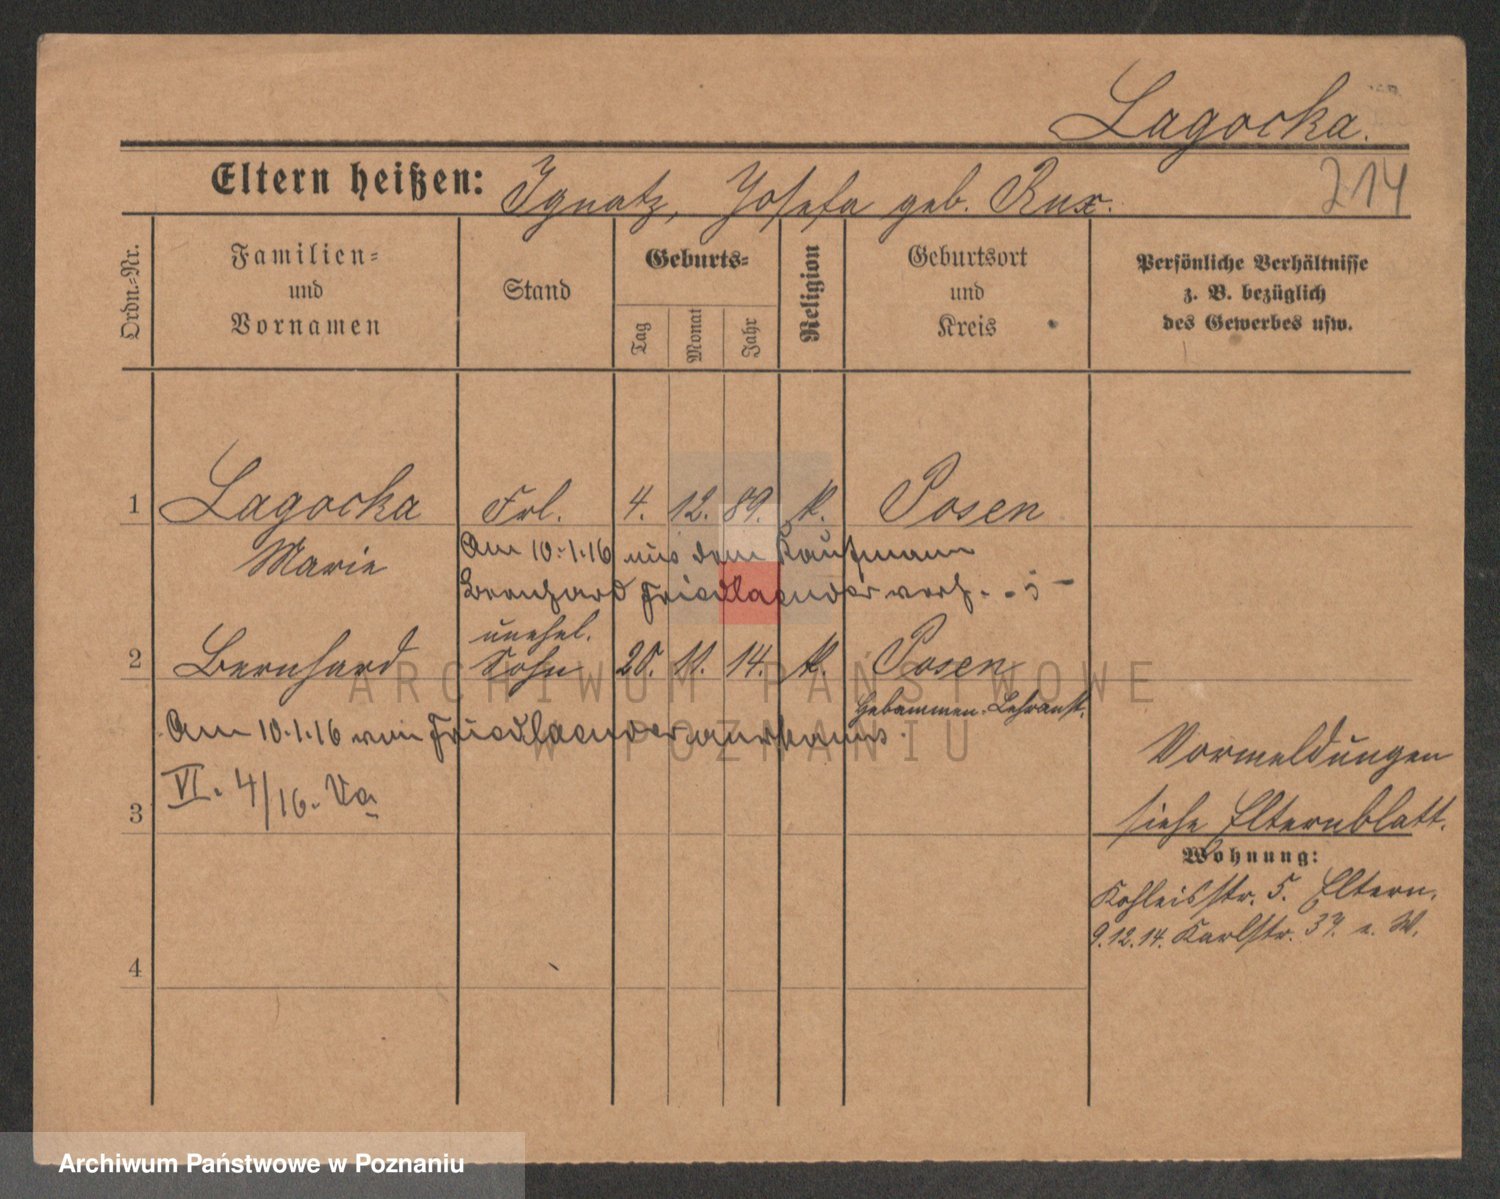 Lagocka.
214
Eltern heißen: Ignatz, Josefa geb. Rux.
Ordn.=Nr.
Familien= und Vornamen
Stand
Geburts=
Tag
Monat
Jahr
Religion
Geburtsort und Kreis
Persönliche Verhältnisse
z. B. bezüglich
des Gewerbes usw.
1 Lagocka Frl. 4. 12. 89. k. Posen
Marie
Am 10.1.16 mit dem Kaufmann
Bernhard Friedlaender verh.
unehel.
2 Bernhard Sohn 20. 11. 14. k. Posen
Hebammen-Lehranst.
Am 10.1.16 von Friedlaender anerkannt.
VI. 4/16. Va
3
Vormeldungen
siehe Elternblatt.
Wohnung:
Kohleisstr. 5. Eltern.
9.12.14. Karlstr. 37. e. W.
4
ARCHIWUM PAŃSTWOWE
W POZNANIU
Archiwum Państwowe w Poznaniu